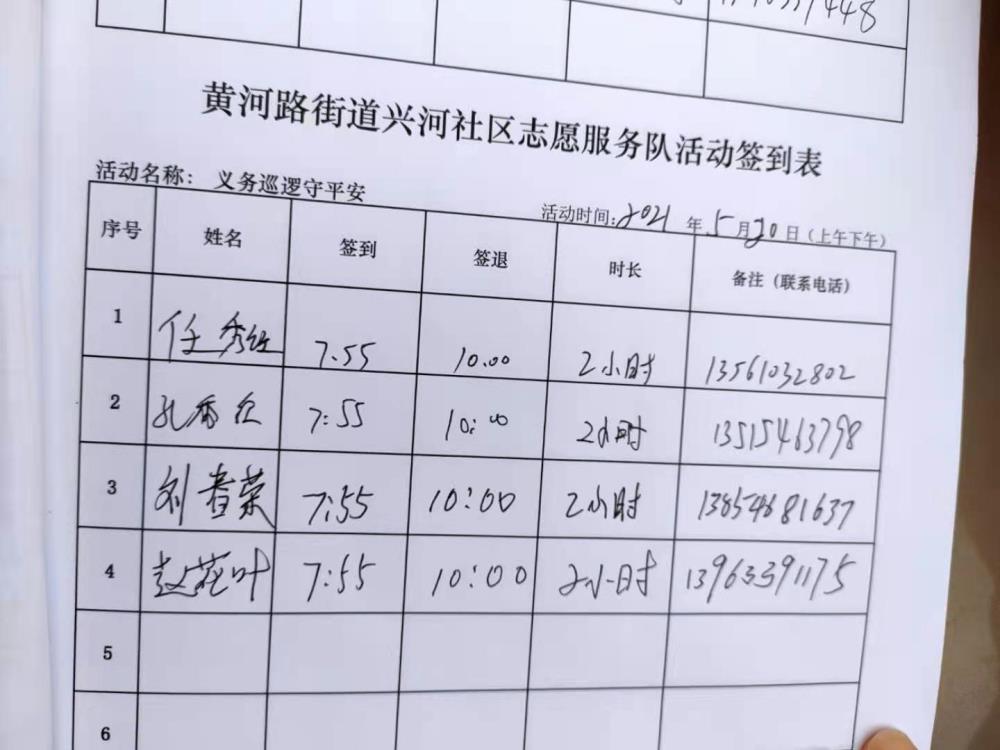 黄河路街道兴河社区志愿服务队活动签到表
活动名称： 义务巡逻守平安
活动时间：2021 年 5 月 20 日（上午下午）
序号 姓名 签到 签退 时长 备注（联系电话）
1 任秀 7.55 10.00 2小时 13561032802
2 孔秀 7:55 10:00 2小时 13515463798
3 刘春荣 7:55 10:00 2小时 13854681637
4 赵花叶 7:55 10:00 2小时 13963391175
5
6